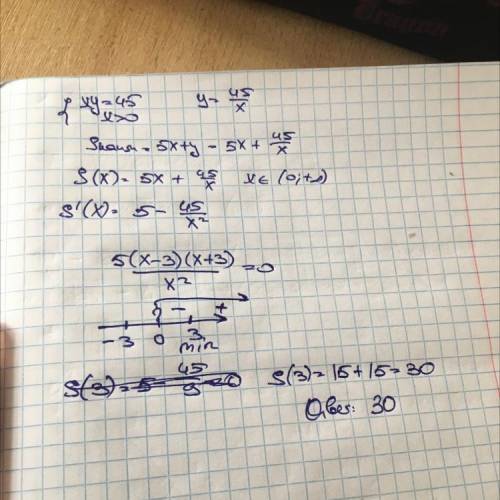 { xy = 45 y = 45/x
x > 0
= 5x + y - 5x + 45/x
S(x) = 5x + 45/x x ∈ (0; +∞)
S'(x) = 5 - 45/x²
5(x-3)(x+3)/x² = 0
- +
-3 0 3
min
S(3) = 15 + 15 = 30
Ответ: 30